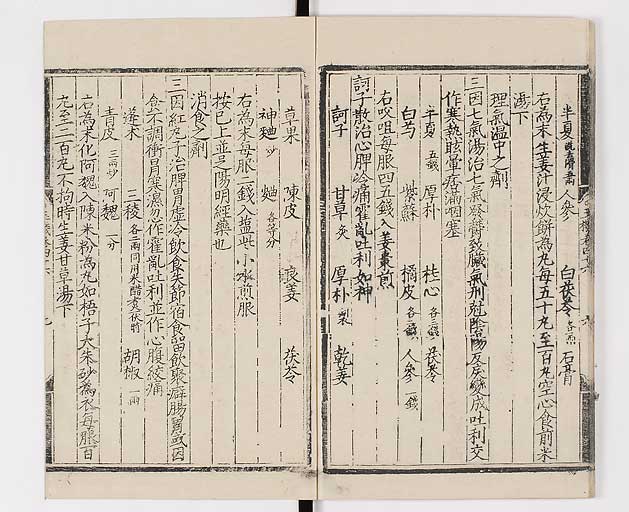 半夏 人參 白茯苓各一兩 石膏
右為末生姜汁浸炊餅為丸每五十丸至百丸空心食前米
湯下
理氣温中之劑
三因七氣湯治七氣欝致臟氣刑尅陰陽反戾變成吐利交
作寒熱眩暈痞滿咽塞
半夏五錢 厚朴 桂心各三錢 茯苓
白芍 紫蘇 橘皮各三錢 人參一錢
右㕮咀每服四五錢入姜棗煎
訶子散治心脾冷痛霍亂吐利如神
訶子 甘草炙 厚朴製 乾姜
草果 陳皮 良姜 茯苓
神麯炒 麯各等分
右為末每服二錢入塩些小水煎服
按已上並足陽明經藥也
消食之劑
三因紅丸子治脾胃虛冷飲食失節宿食留飲聚癖腸胃或因
食不調衝冒寒濕忽作霍亂吐利並作心腹絞痛
蓬朮 三稜各二兩同用米醋煮伏時 胡椒一兩
青皮三兩炒 阿魏一分
右為末化阿魏入陳米粉為丸如梧子大朱砂為衣每服百
丸至二百丸不拘時生姜甘草湯下